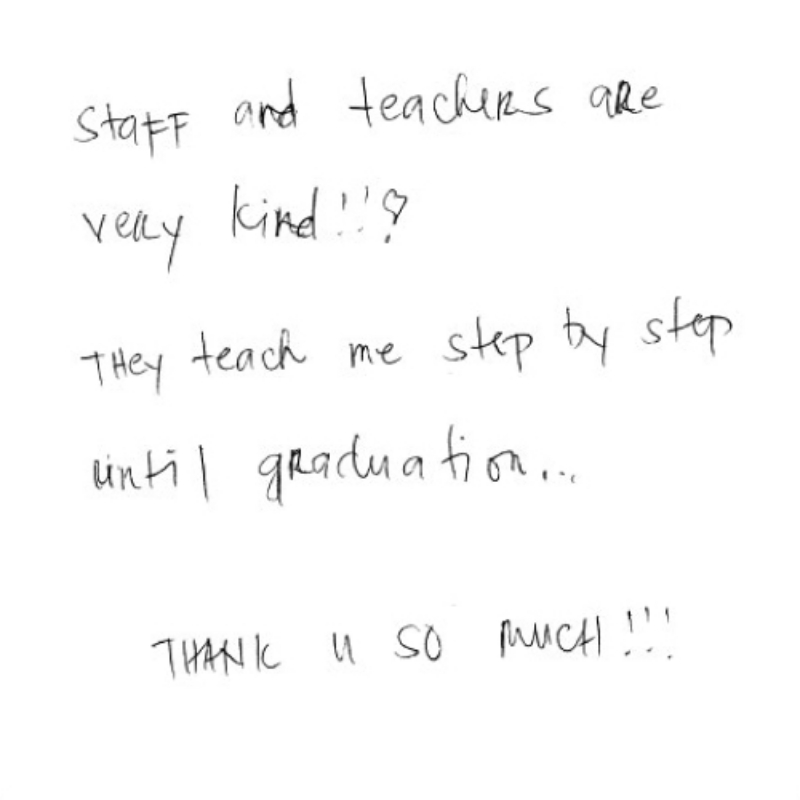 Staff and teachers are
very kind!!♡
They teach me step by step
until graduation...
THANK U SO MUCH!!!